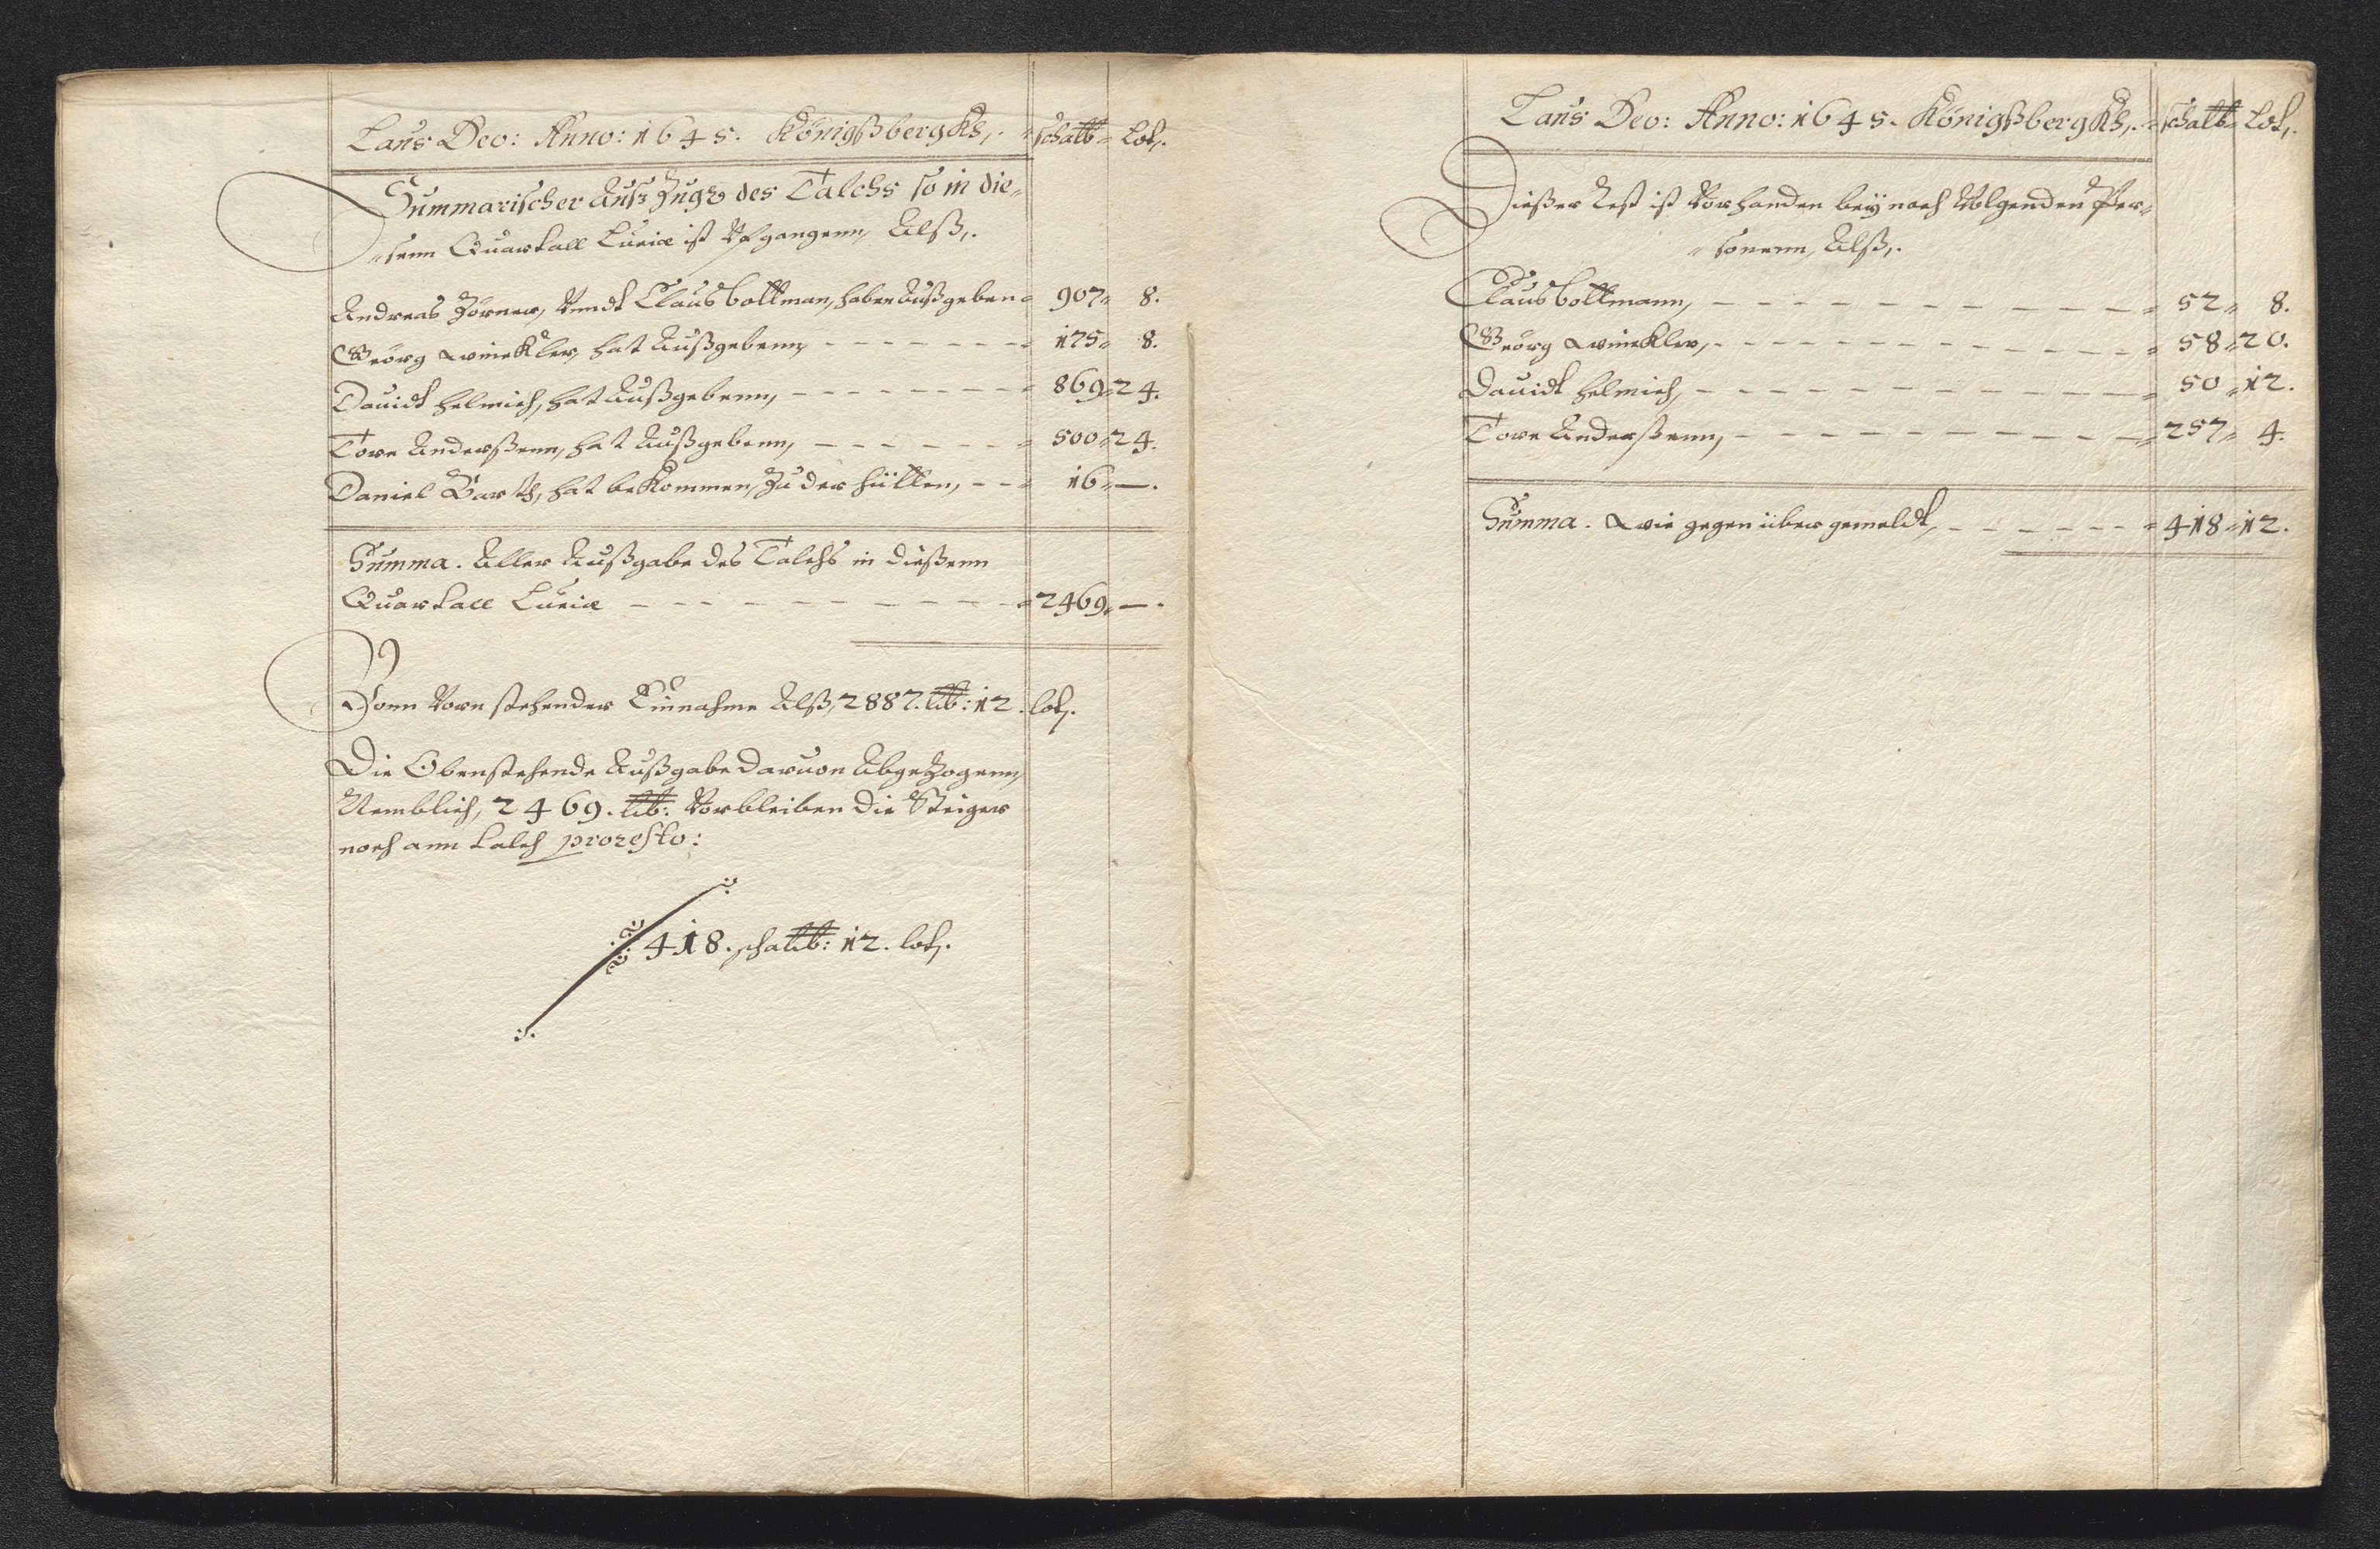 Laus Deo: Anno: 1645. Königßbergks,. schalb lot,.
Summarischer Außzugk des Talchs so in die-
senn Quartall Luciæ ist Vfgangenn, Alß,.
Andreas Zörner, Vnndt Claus Coltman, haben Außgeben 907 8.
Geörg Winckler, hat Außgebenn, 175 8.
Dauidt Helmich, hat Außgebenn, 869 24.
Tore Anderßenn, hat Außgebenn, 500 24.
Daniel Barth, hat bekommen, Zu der Hütten, 16 —.
Summa. Aller Außgabe des Talchs in dießenn
Quartall Luciæ 2469 —.
Vonn Vornstehender Einnahme Alß, 2887. lib: 12. lot,.
Die Obenstehende Außgabe daruon Abgezogenn,
Nemblich, 2469. lib: Vorbleiben die Steiger
noch ann talch pro resto:
418. schalib: 12. lot,.
Laus Deo: Anno: 1645. Königßbergks,. schalb lot,.
Dießer Rest ist Vorhanden beÿ nach Volgenden Per-
sonenn, Alß,.
Claus Coltmann, 52 8.
Geörg Winckler, 58 20.
Dauidt Helmich, 50 12.
Tore Anderßenn, 257 4.
Summa. Wie gegenüber gemeldt, 418 12.